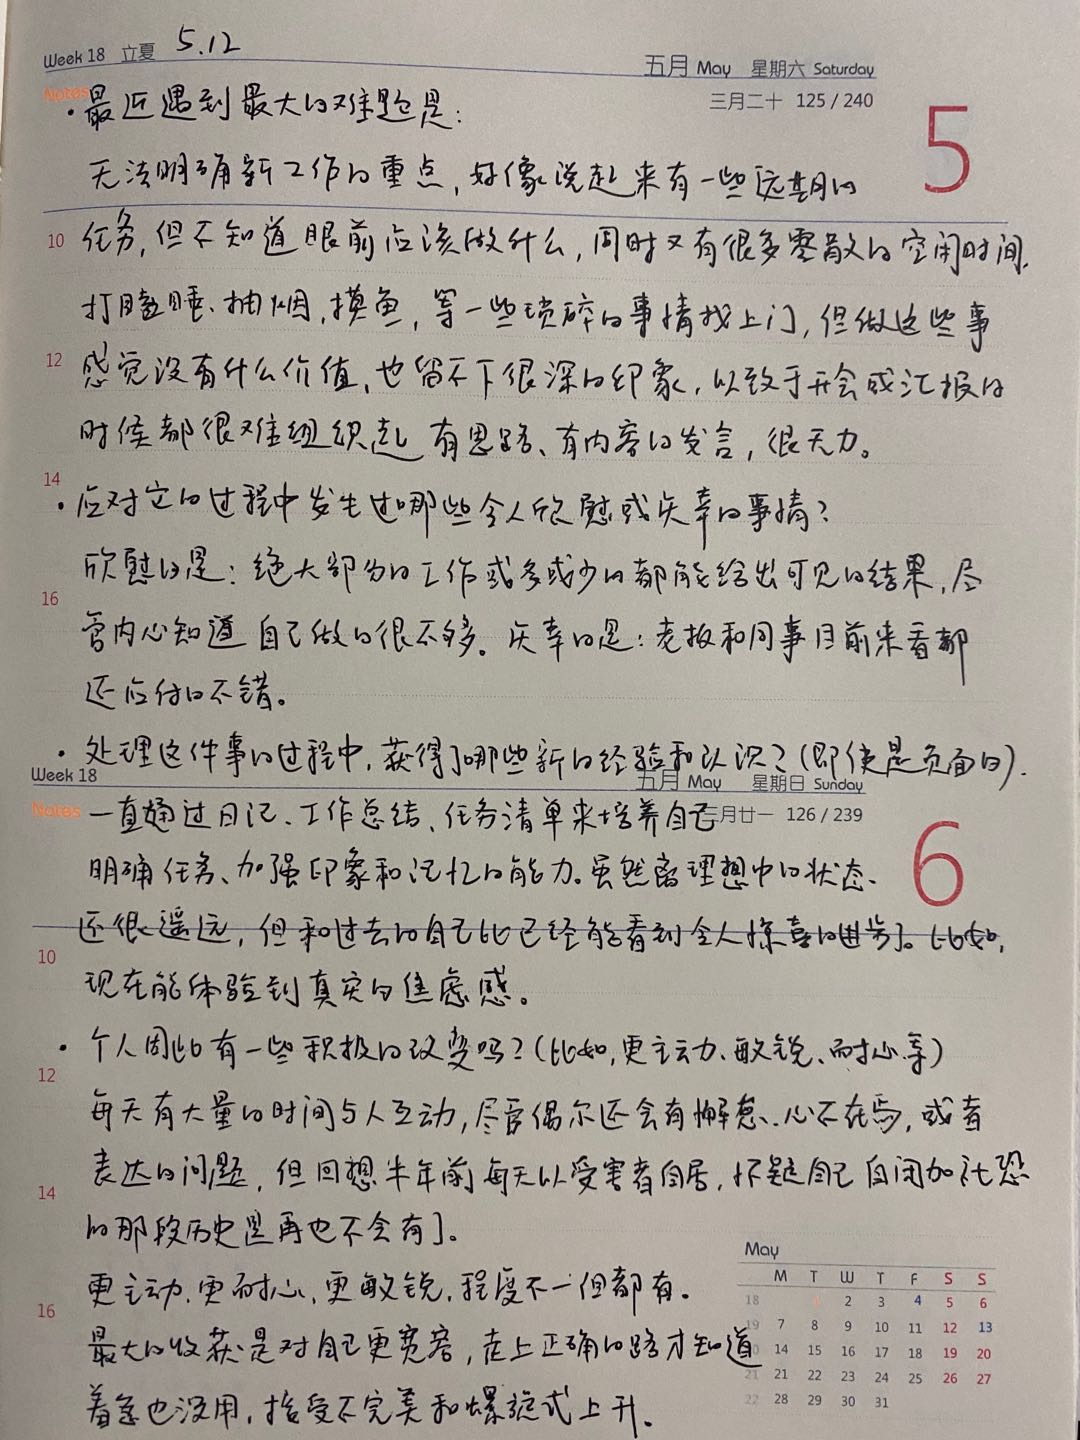 Week 18 立夏 5.12
五月 May 星期六 Saturday
Notes
三月二十 125/240
5
·最近遇到最大的难题是：
无法明确新工作的重点，好像说起来有一些远期的
10 任务，但不知道眼前应该做什么，同时又有很多零散的空闲时间，
打瞌睡、抽烟，摸鱼，等一些琐碎的事情找上门，但做这些事
12 感觉没有什么价值，也留不下很深的印象，以致于开会或汇报的
时候都很难组织起有思路、有内容的发言，很无力。
14
·应对它的过程中发生过哪些令人欣慰或庆幸的事情？
欣慰的是：绝大部分的工作或多或少的都能给出可见的结果，尽
16
管内心知道自己做的很不够。庆幸的是：老板和同事目前来看都
还应付的不错。
·处理这件事的过程中，获得了哪些新的经验和认识？（即使是负面的）.
Week 18
五月 May 星期日 Sunday
Notes
三月廿一 126/239
6
一直通过日记、工作总结、任务清单来培养自己
明确任务、加强印象和记忆的能力。虽然离理想中的状态、
还很遥远，但和过去的自己比已经能看到令人惊喜的进步了。比如，
10
现在能体验到真实的焦虑感。
·个人因此有一些积极的改变吗？（比如，更主动、敏锐、耐心等）
12
每天有大量的时间与人互动，尽管偶尔还会有懈怠、心不在焉，或者
表达的问题，但回想半年前每天以受害者自居，怀疑自己自闭加社恐
14
的那段历史是再也不会有了。
更主动、更耐心、更敏锐，程度不一但都有。
16
最大的收获是对自己更宽容，走上正确的路才知道
着急也没用，接受不完美和螺旋式上升。
May
M T W T F S S
18 1 2 3 4 5 6
19 7 8 9 10 11 12 13
20 14 15 16 17 18 19 20
21 21 22 23 24 25 26 27
22 28 29 30 31